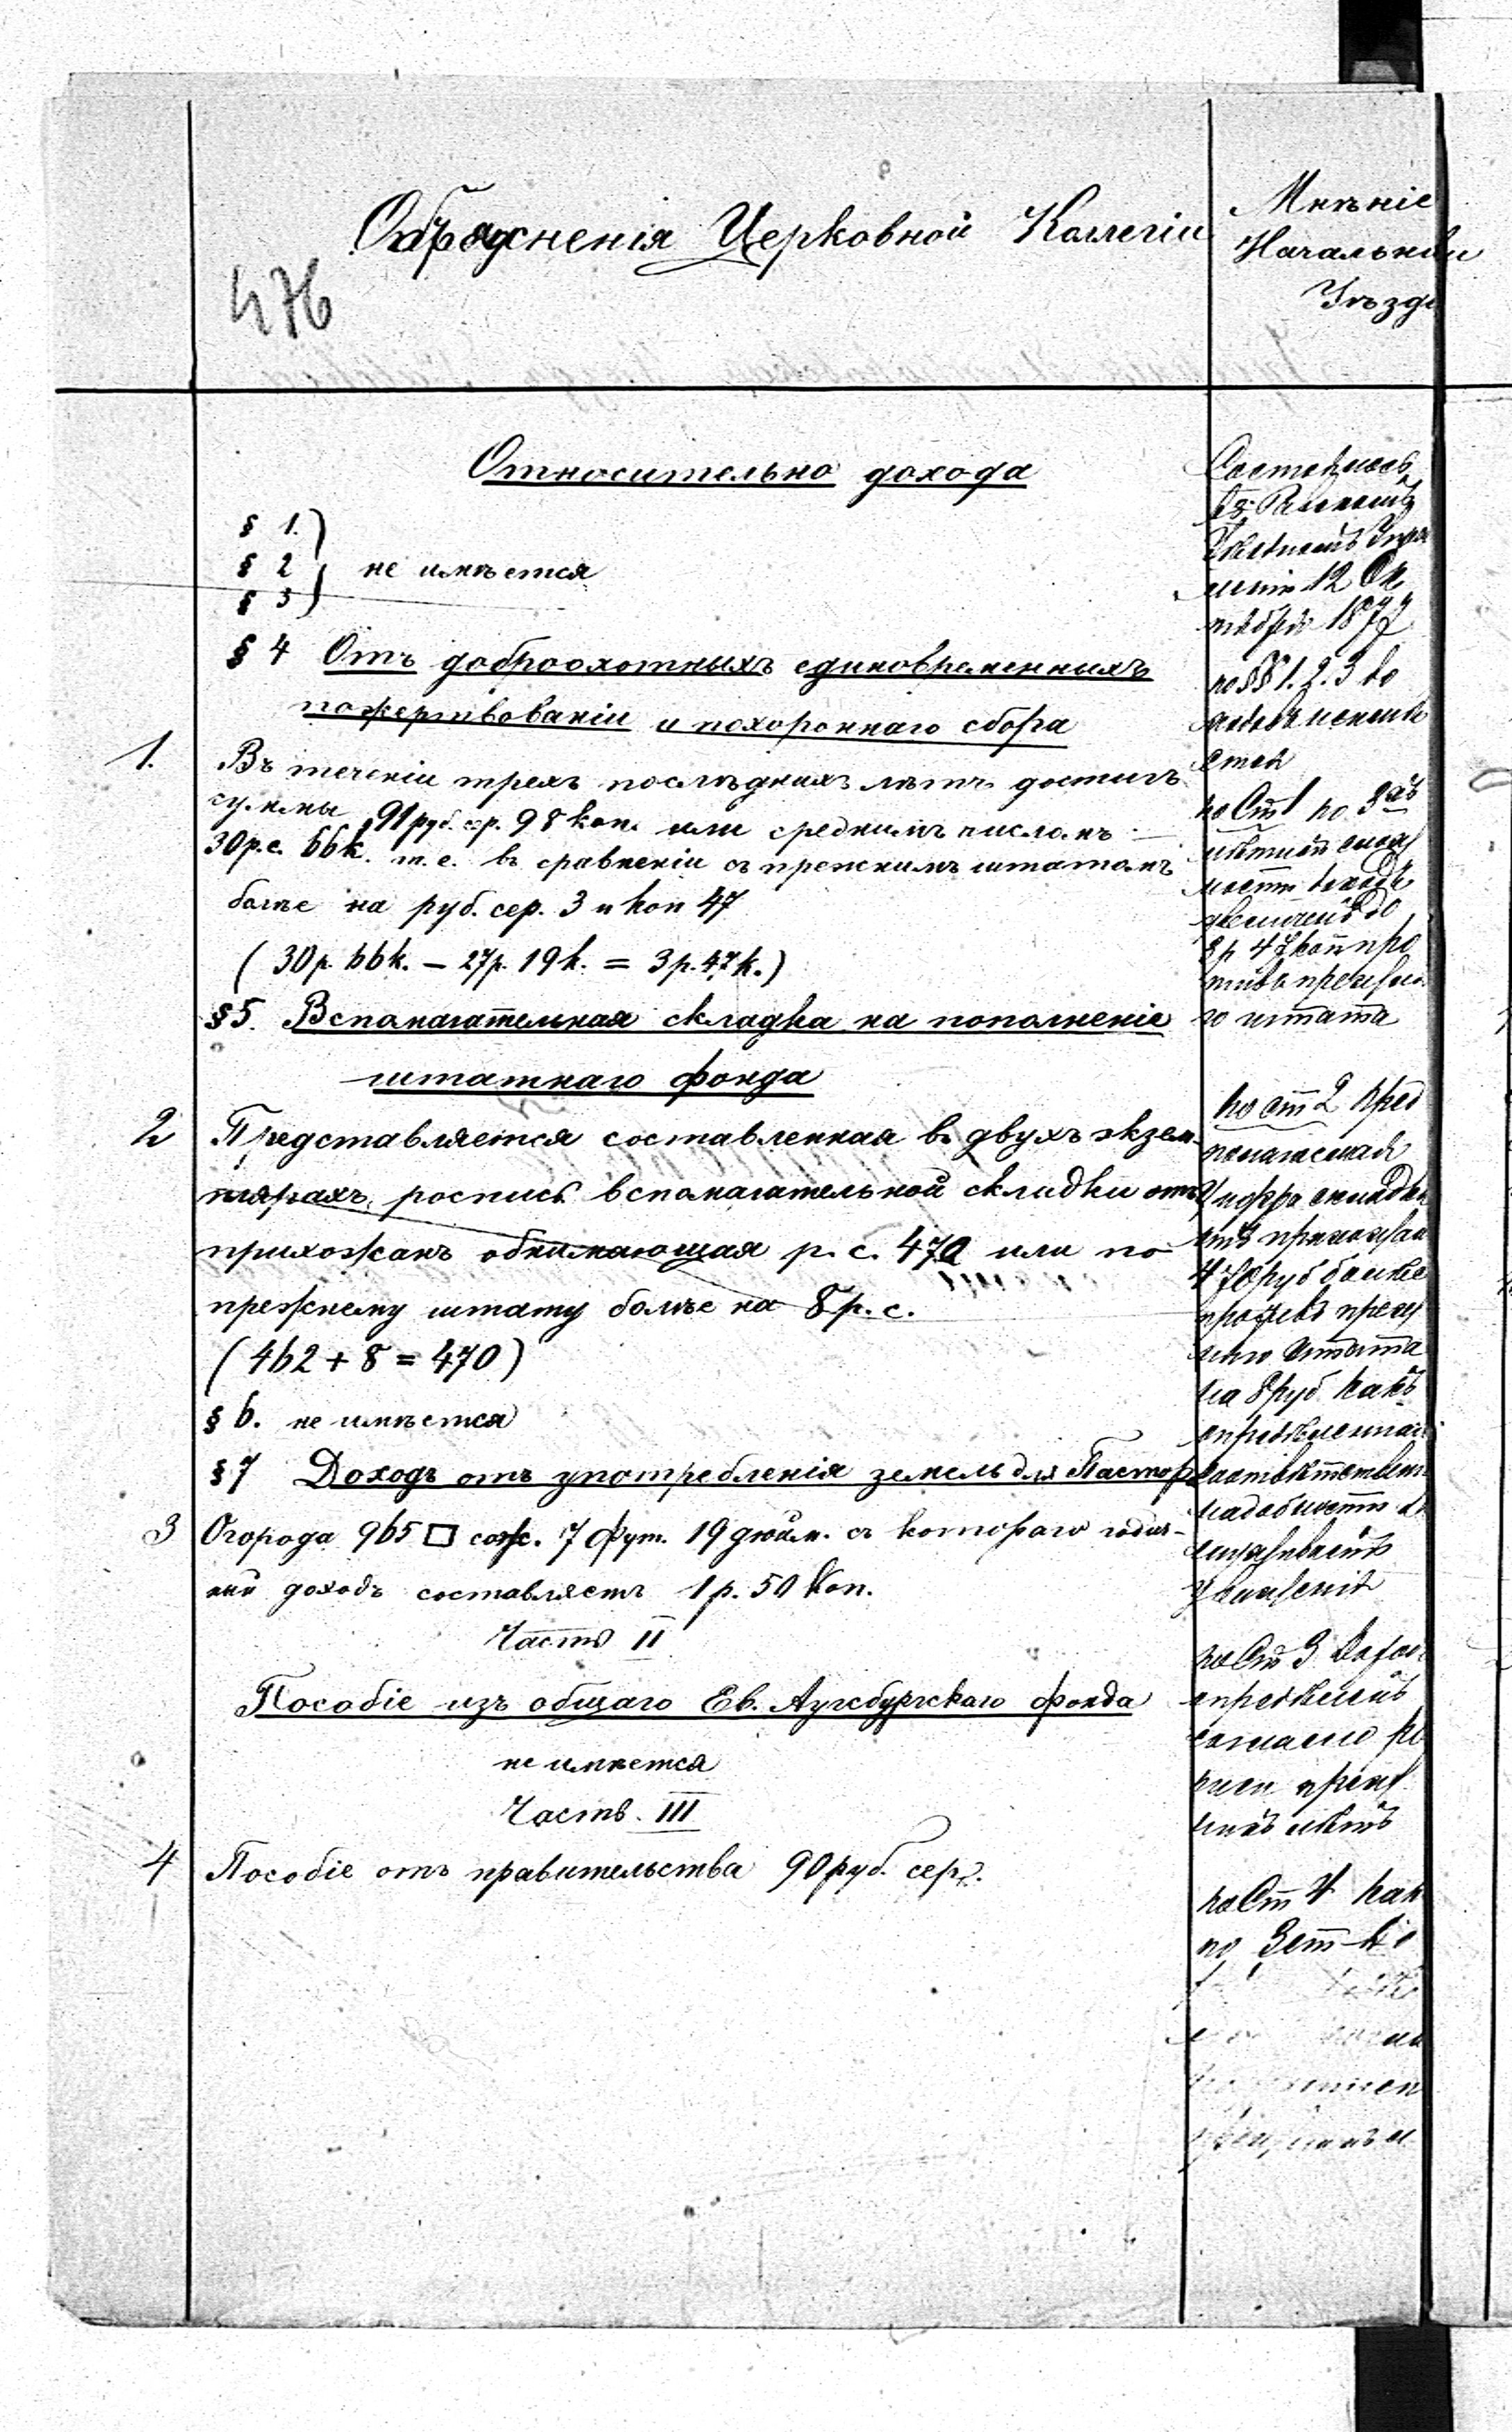 Объясненія Церковной Коллегіи
476
Мнѣніе
Начальника
Уѣзда
Относительно дохода
§ 1.
§ 2 не имѣется
§ 3
§ 4 Отъ доброохотныхъ единовременныхъ
пожертвованіи и похороннаго сбора
1. Въ теченіи трехъ послѣднихъ лѣтъ достигъ
суммы 91 руб. сер. 98 коп. или среднимъ числомъ
30 р. с. 66 к. т. е. въ сравненіи съ прежнимъ штатомъ
болѣе на руб. сер. 3 и коп 47
(30 р. 66 к. – 27 р. 19 к. = 3 р. 47 к.)
§ 5. Вспомагательная складка на пополненіе
штатнаго фонда
2 Представляется составленная въ двухъ экзем-
плярахъ роспись вспомагательной складки отъ
прихожанъ обнимающая р. с. 470 или по
прежнему штату болѣе на 8 р. с.
(462 + 8 = 470)
§ 6. не имѣется
§ 7 Доходъ отъ употребленія земель для Пастор
3 Огорода 965 □ саж. 7 фут. 19 дюйм. съ котораго годич-
ный доходъ составляетъ 1 р. 50 коп.
Часть II
Пособіе изъ общаго Ев. Аугсбургскаго фонда
не имѣется
Часть III
4 Пособіе отъ правительства 90 руб. сер.
12 Ок
тября 1877
по §§ 1. 2. 3 до
по Ст 1 по 3хъ
лѣтней
доходъ
3 р 47 коп про
тивъ прежня
го штата
по ст 2 пред
полагаемая
цифра складки
отъ прихожан
470 руб болѣе
противъ преж
няго штата
на 8 руб какъ
по Ст 3 доход
опредѣленъ
согласно
преж
нихъ лѣтъ
по Ст 4 как
по 3 ст